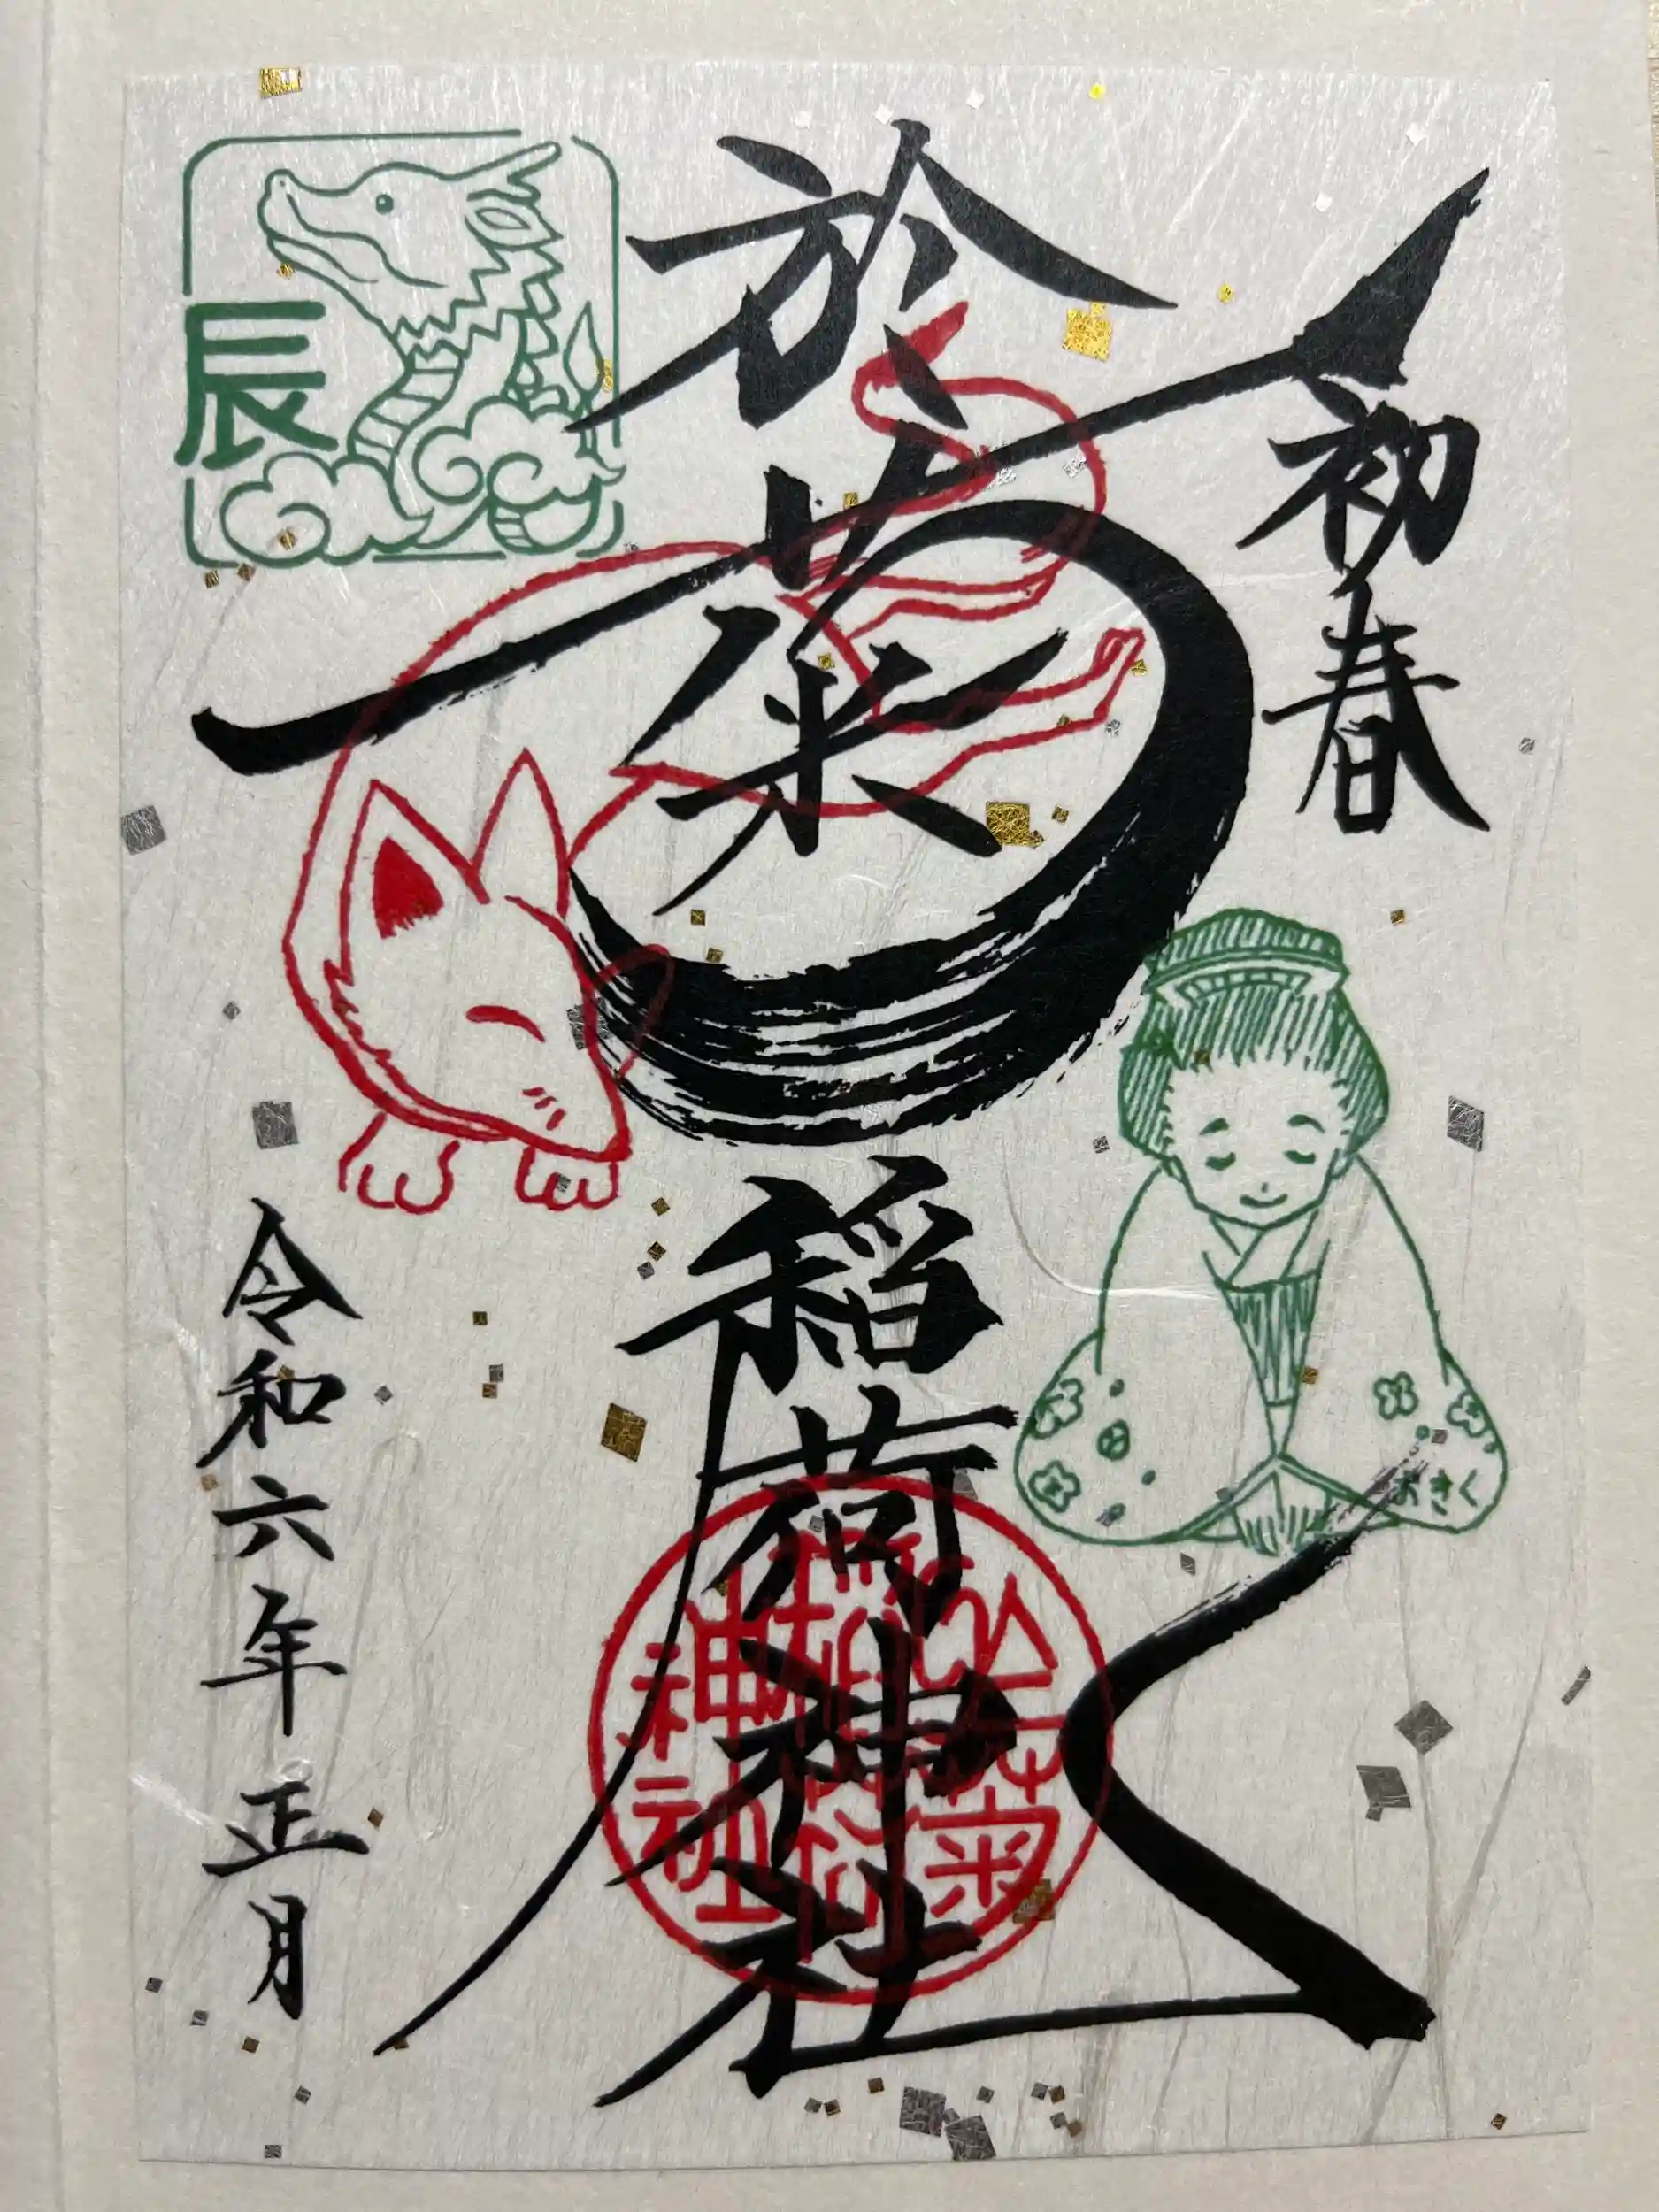 初春
於菊稲荷神社
令和六年 正月
辰
おきく
於菊
稲荷
神社